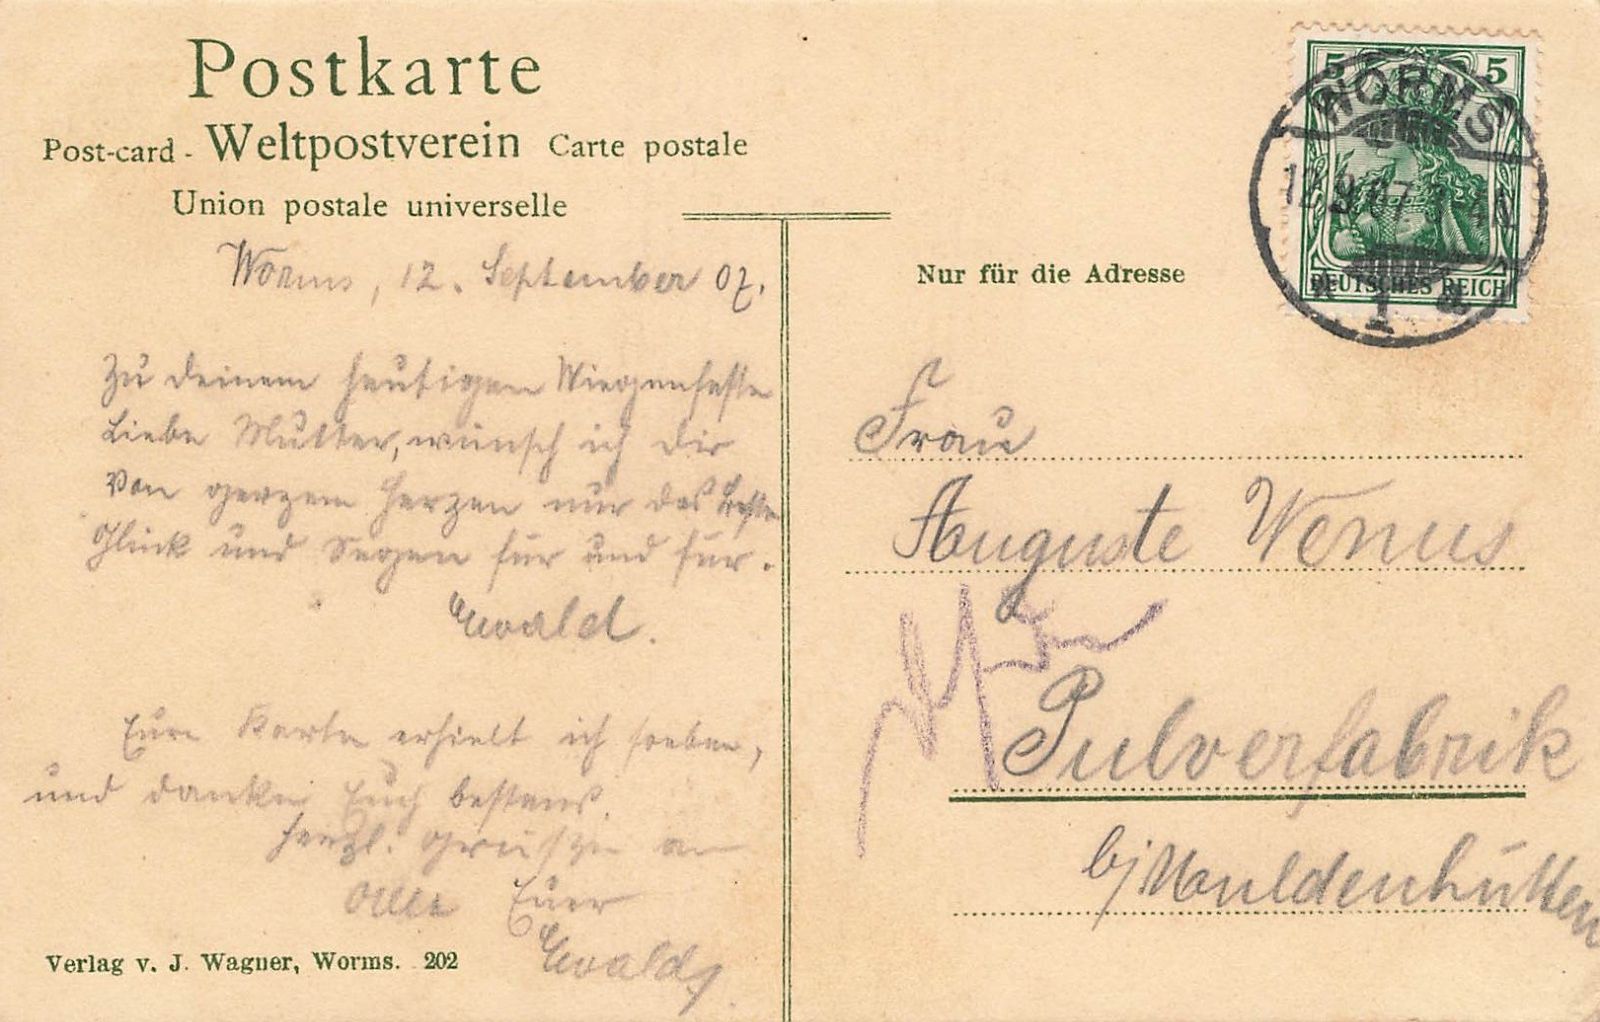 Postkarte
Post-card - Weltpostverein Carte postale
Union postale universelle
Worms, 12. September 07.
Zu deinem heutigen Wiegenfeste
Liebe Mutter, wünsch ich dir
von ganzem Herzen nur das Beste
Glück und Segen für und für.
Ewald.
Eure Karte erhielt ich soeben,
und danke Euch bestens.
Herzl. Grüsze an
Alle Euer
Ewald
Verlag v. J. Wagner, Worms. 202
5 5
DEUTSCHES REICH
WORMS
12.9.07
1
Nur für die Adresse
Frau
Auguste Wenus
Pulverfabrik
b/Muldenhütten